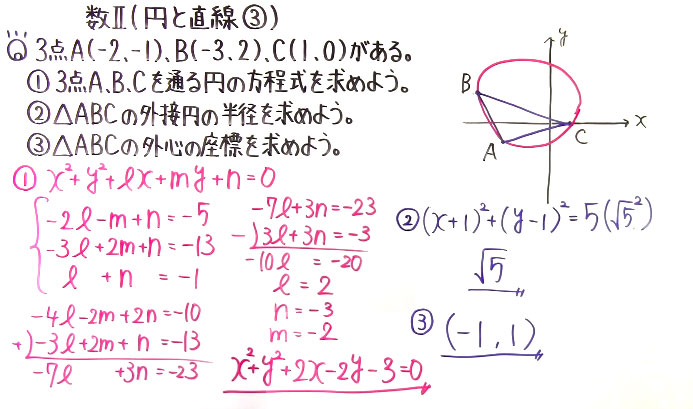 数Ⅱ(円と直線③)
問 3点A(-2,-1)、B(-3,2)、C(1,0)がある。
① 3点A、B、Cを通る円の方程式を求めよう。
② △ABCの外接円の半径を求めよう。
③ △ABCの外心の座標を求めよう。
y
B
x
A
C
① x²+y²+lx+my+n=0
-2l-m+n=-5
-3l+2m+n=-13
l +n =-1
-4l-2m+2n=-10
+)-3l+2m+n=-13
-7l +3n=-23
-7l+3n=-23
-)3l+3n=-3
-10l =-20
l=2
n=-3
m=-2
x²+y²+2x-2y-3=0
② (x+1)²+(y-1)²=5(√5²)
√5
③ (-1,1)